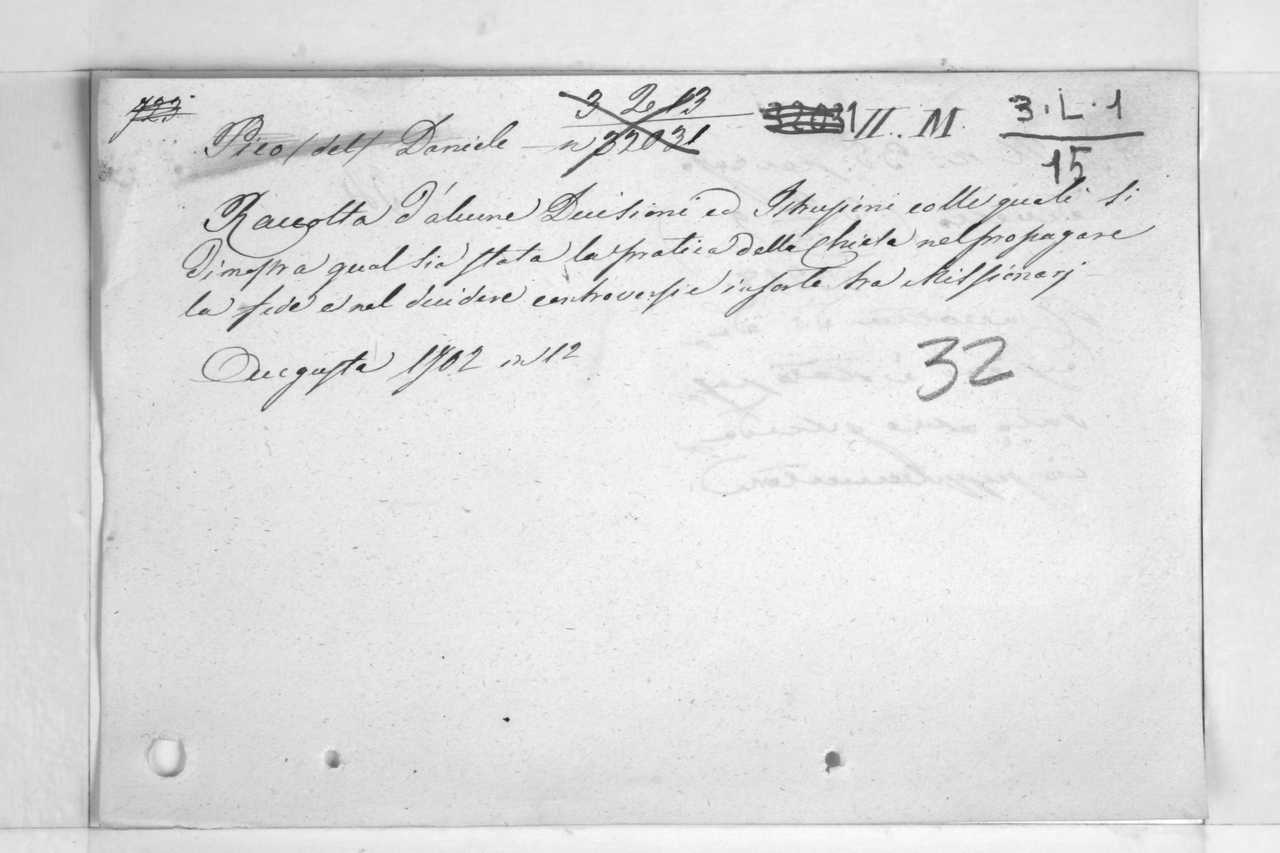 723
3 2 13
32031 II. M.
3·L·1
15
Pico (del) Daniele - n 32031
Raccolta d'alcune Decisioni ed Istruzioni colle quali si
dimostra qual sia stata la pratica della Chiesa nel propagare
la fede e nel decidere controversie insorte tra Missionarj
Augusta 1702 in 12
32